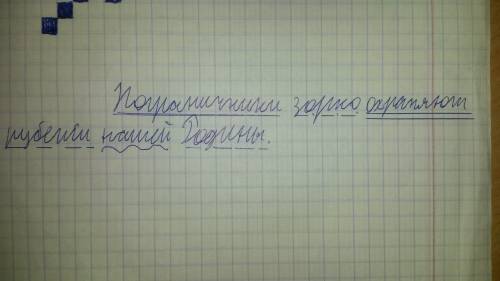 Пограничники зорко охраняют
рубежи нашей Родины.